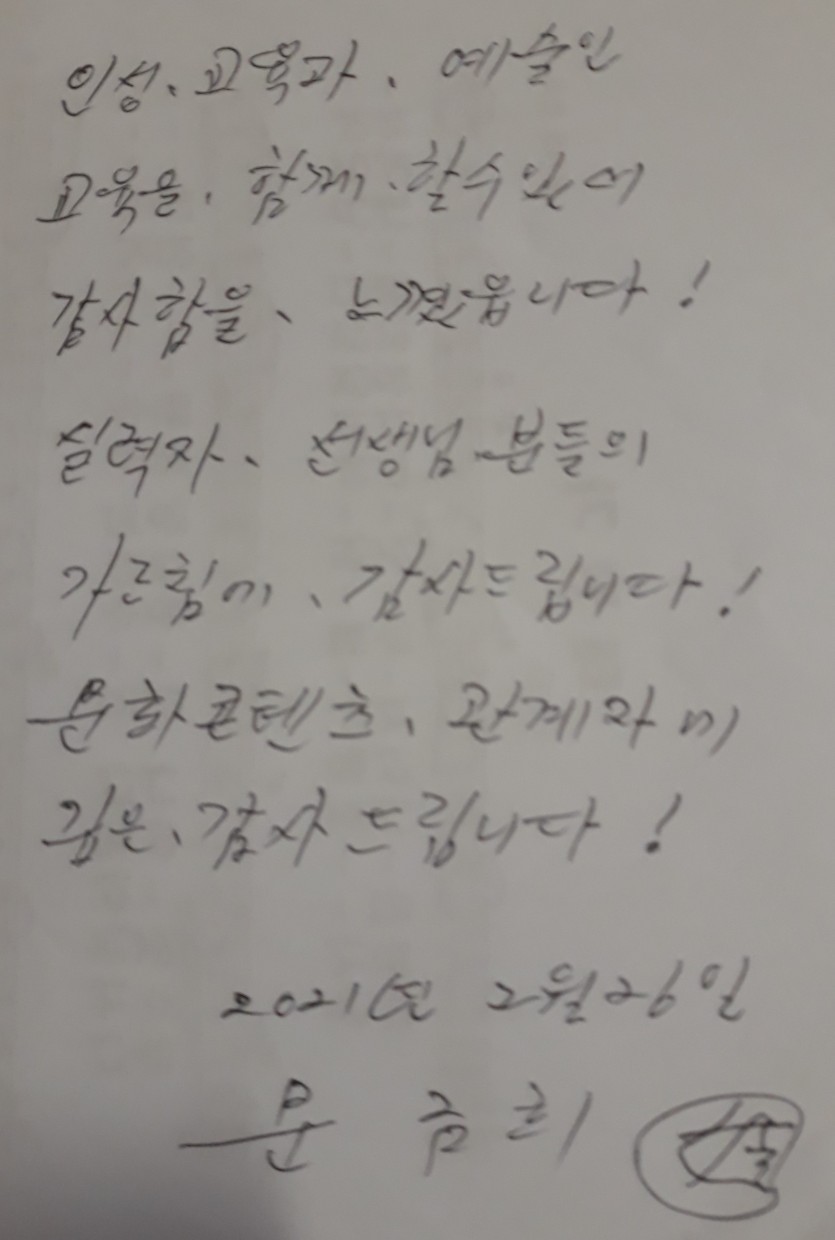 인성、교육과、예술인
교육을、함께、할수있어
감사함을、느꼈읍니다!
실력자、선생님、분들의
가르침에、감사드립니다!
문화콘텐츠、관계자에
깊은、감사드립니다!
2021년 2월 26일
문금희